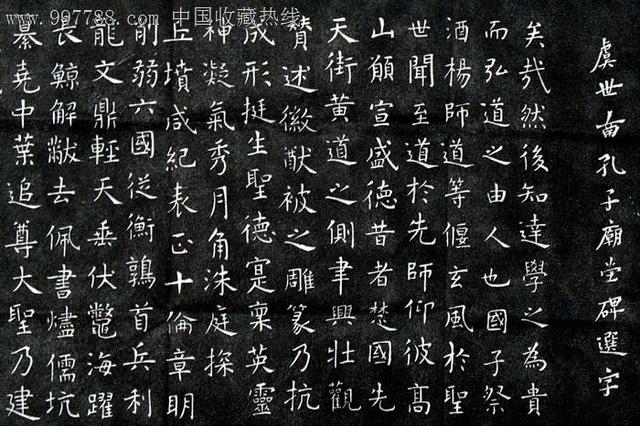 www.997788.com 中国收藏热线
虞世南孔子廟堂碑選字
矣哉然後知達學之為貴
而弘道之由人也國子祭
酒楊師道等偃玄風於聖
世聞至道於先師仰彼高
山願宣盛德昔者楚國先
天街黃道之側聿興壯觀
贊述徽猷被之雕篆乃抗
成形挺生聖德寔稟英靈
神凝氣秀月角洙庭探
丘墳咸紀表正十倫章明
削弱六國從衡鶉首兵利
龍文鼎輕天垂伏鼈海躍
長鯨解黻去佩書燼儒坑
纂堯中葉追尊大聖乃建